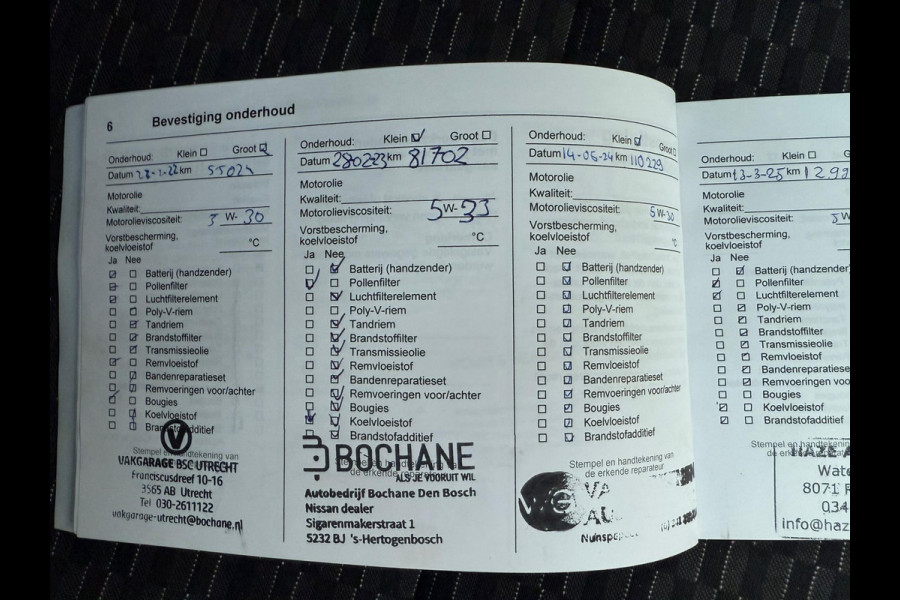 6 Bevestiging onderhoud
Onderhoud: Klein Groot
Datum 28-1-22 km 55024
Motorolie
Kwaliteit:
Motorolieviscositeit: 5 W- 30
Vorstbescherming,
koelvloeistof °C
Ja Nee
Batterij (handzender)
Pollenfilter
Luchtfilterelement
Poly-V-riem
Tandriem
Brandstoffilter
Transmissieolie
Remvloeistof
Bandenreparatieset
Remvoeringen voor/achter
Bougies
Koelvloeistof
Brandstofadditief
Stempel en handtekening van
VAKGARAGE BSC UTRECHT
Franciscusdreef 10-16
3565 AB Utrecht
Tel 030-2611122
vakgarage-utrecht@bochane.nl
Onderhoud: Klein Groot
Datum 280223 km 81702
Motorolie
Kwaliteit:
Motorolieviscositeit: 5 W- 33
Vorstbescherming,
koelvloeistof °C
Ja Nee
Batterij (handzender)
Pollenfilter
Luchtfilterelement
Poly-V-riem
Tandriem
Brandstoffilter
Transmissieolie
Remvloeistof
Bandenreparatieset
Remvoeringen voor/achter
Bougies
Koelvloeistof
Brandstofadditief
de erkende
BOCHANE
ALS JE VOORUIT WIL
Autobedrijf Bochane Den Bosch
Nissan dealer
Sigarenmakerstraat 1
5232 BJ 's-Hertogenbosch
Onderhoud: Klein Groot
Datum 14-06-24 km 110229
Motorolie
Kwaliteit:
Motorolieviscositeit: 5 W-30
Vorstbescherming,
koelvloeistof °C
Ja Nee
Batterij (handzender)
Pollenfilter
Luchtfilterelement
Poly-V-riem
Tandriem
Brandstoffilter
Transmissieolie
Remvloeistof
Bandenreparatieset
Remvoeringen voor/achter
Bougies
Koelvloeistof
Brandstofadditief
Stempel en handtekening van
de erkende reparateur
VA
AU
Onderhoud: Klein G
Datum 13-3-25 km 1299
Motorolie
Kwaliteit:
Motorolieviscositeit: 5 W-
Vorstbescherming,
koelvloeistof
Ja Nee
Batterij (handzender)
Pollenfilter
Luchtfilterelement
Poly-V-riem
Tandriem
Brandstoffilter
Transmissieolie
Remvloeistof
Bandenreparatiese
Remvoeringen voo
Bougies
Koelvloeistof
Brandstofadditief
Stempel en handtekening
Wate
8071
034
info@haz